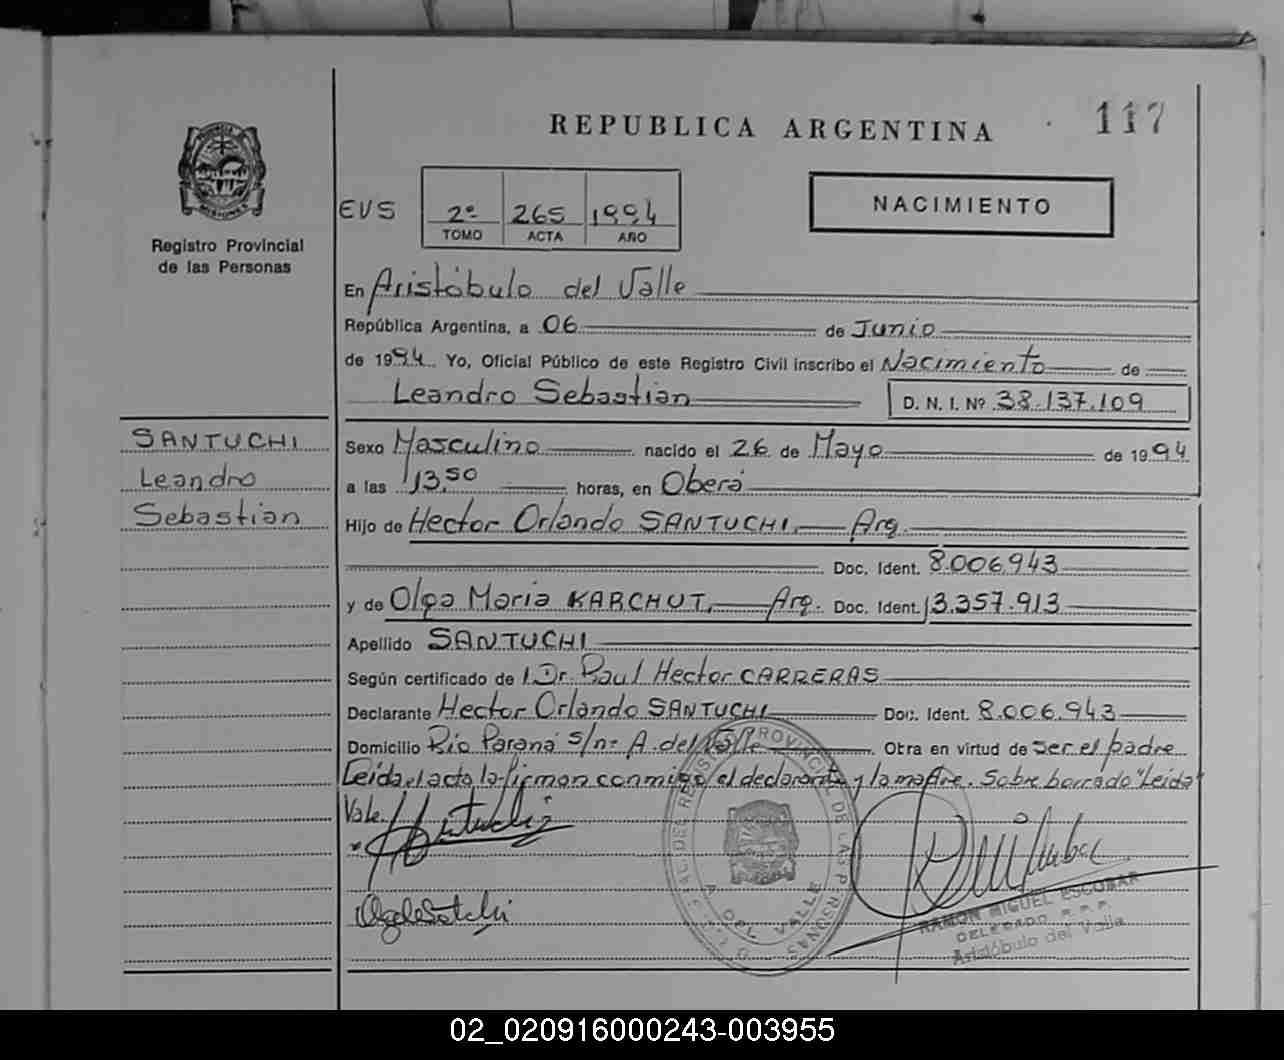 REPUBLICA ARGENTINA
117
PROVINCIA DE
MISIONES
Registro Provincial
de las Personas
EVS
2º 265 1994
TOMO ACTA AÑO
NACIMIENTO
En Aristóbulo del Valle
República Argentina, a 06 de Junio
de 1994. Yo, Oficial Público de este Registro Civil inscribo el Nacimiento de
Leandro Sebastian D. N. I. Nº 38.137.109
SANTUCHI
Leandro
Sebastian
Sexo Masculino nacido el 26 de Mayo de 1994
a las 13,50 horas, en Oberá
Hijo de Hector Orlando SANTUCHI, Arg.
Doc. Ident. 8.006.943
y de Olga Maria KARCHUT, Arg. Doc. Ident. 13.357.913
Apellido SANTUCHI
Según certificado de Dr. Raul Hector CARRERAS
Declarante Hector Orlando SANTUCHI Doc. Ident. 8.006.943
Domicilio Rio Paraná s/nº A. del Valle Obra en virtud de ser el padre
Leida el acta la firman conmigo el declarante y la madre. Sobre borrado "Leida"
Vale.
REGISTRO PROVINCIAL DE LAS PERSONAS
A. DEL VALLE
RAMON MIGUEL ESCOBAR
DELEGADO R.P.P.
Aristóbulo del Valle
02_020916000243-003955